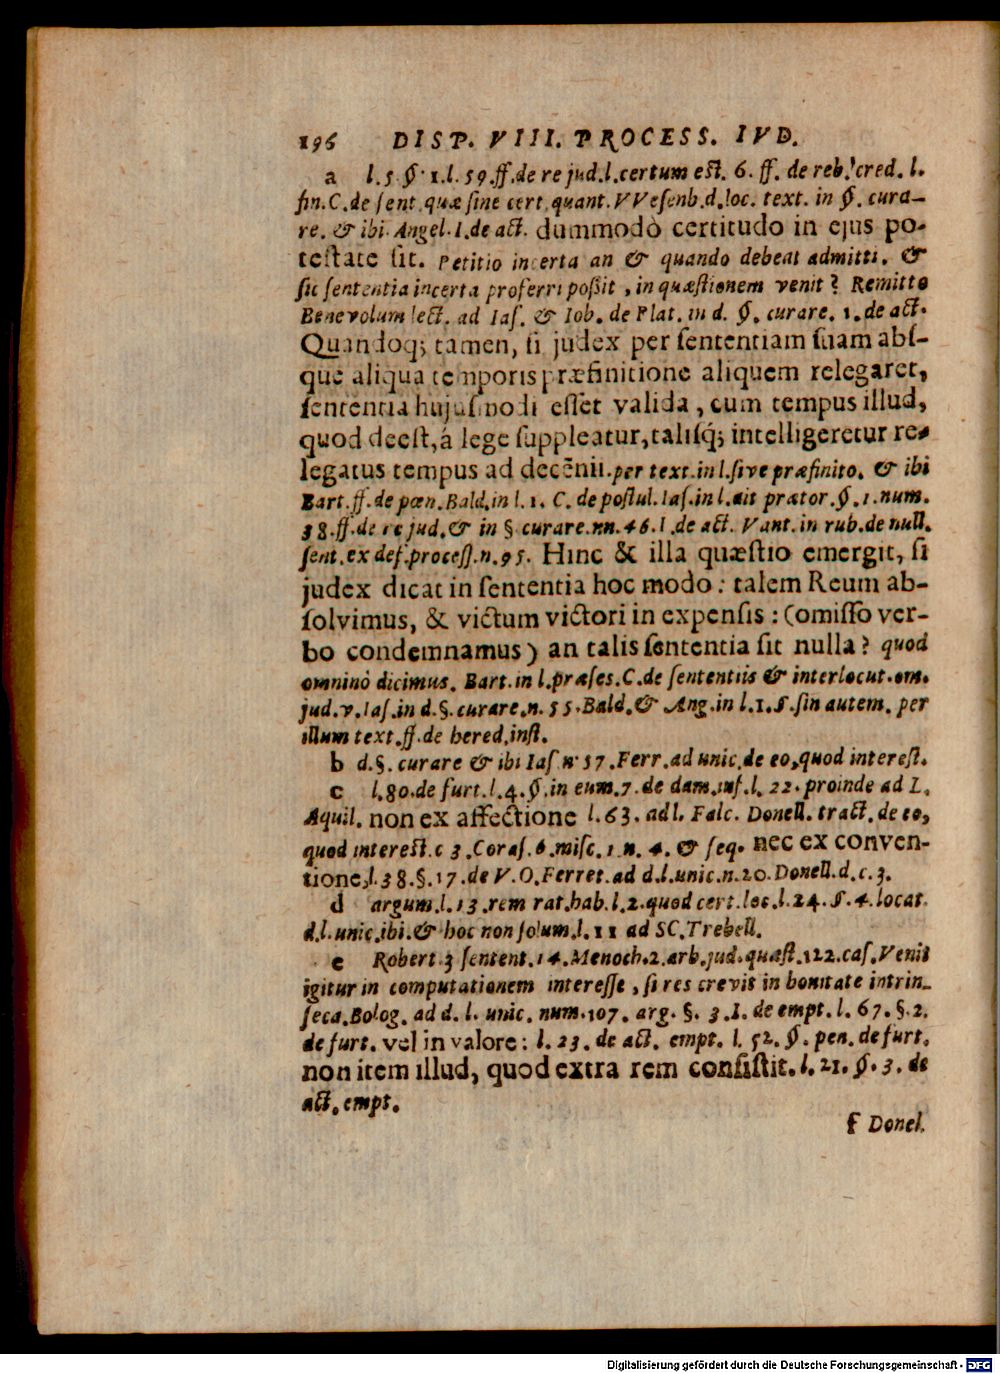 196 DISP. VIII. PROCESS. IVD.
a l. 5 §. 1. l. 59. ff. de re jud. l. certum est. 6. ff. de reb. cred. l.
fin. C. de sent. quæ sine cert. quant. VVesenb. d. loc. text. in §. cura-
re. & ibi. Angel. I. de act. dummodò certitudo in ejus po-
testate sit. Petitio incerta an & quando debeat admitti. &
sic sententia incerta proferri poßit, in quæstionem venit? Remitto
Benevolum lect. ad Ias. & Iob. de Plat. in d. §. curare. 1. de act.
Quandoq; tamen, si judex per sententiam suam abs-
que aliqua temporis præfinitione aliquem relegaret,
sententia hujusmodi esset valida, cum tempus illud,
quod deest, á lege suppleatur, talisq́; intelligeretur re-
legatus tempus ad decẽnii. per text. in l. sive præfinito. & ibi
Bart. ff. de pœn. Bald. in l. 1. C. de postul. Ias. in l. ait prætor. §. 1. num.
38. ff. de re jud. & in § curare. nn. 46. I. de act. Vant. in rub. de null.
sent. ex def. process. n. 95. Hinc & illa quæstio emergit, si
judex dicat in sententia hoc modo: talem Reum ab-
solvimus, & victum victori in expensis: (omisso ver-
bo condemnamus) an talis sententia sit nulla? quod
omninò dicimus. Bart. in l. præses. C. de sententiis & interlocut. om.
jud. v. Ias. in d. §. curare. n. 55. Bald. & Ang. in l. 1. §. sin autem. per
illum text. ff. de hered. inst.
b d. §. curare & ibi Ias. n. 57. Ferr. ad unic. de eo, quod interest.
c l. 80. de furt. l. 4. §. in eum. 7. de dam. inf. l. 22. proinde ad L.
Aquil. non ex affectione l. 63. ad l. Falc. Donell. tract. de eo,
quod interest. c 3. Coras. 6. misc. 1. n. 4. & seq. nec ex conven-
tione, l. 38. §. 17. de V. O. Ferret. ad d. l. unic. n. 20. Donell. d. c. 3.
d argum. l. 13. rem rat. hab. l. 2. quod cert. loc. l. 24. §. 4. locat.
d. l. unic. ibi. & hoc non solum. l. 11 ad SC. Trebell.
e Robert. 3 sentent. 14. Menoch. 2. arb. jud. quæst. 122. cas. Venit
igitur in computationem interesse, si res crevit in bonitate intrin-
seca. Bolog. ad d. l. unic. num. 107. arg. §. 3. I. de empt. l. 67. §. 2.
de furt. vel in valore: l. 23. de act. empt. l. 52. §. pen. de furt.
non item illud, quod extra rem consistit. l. 21. §. 3. de
act. empt.
f Donel.
Digitalisierung gefördert durch die Deutsche Forschungsgemeinschaft - DFG